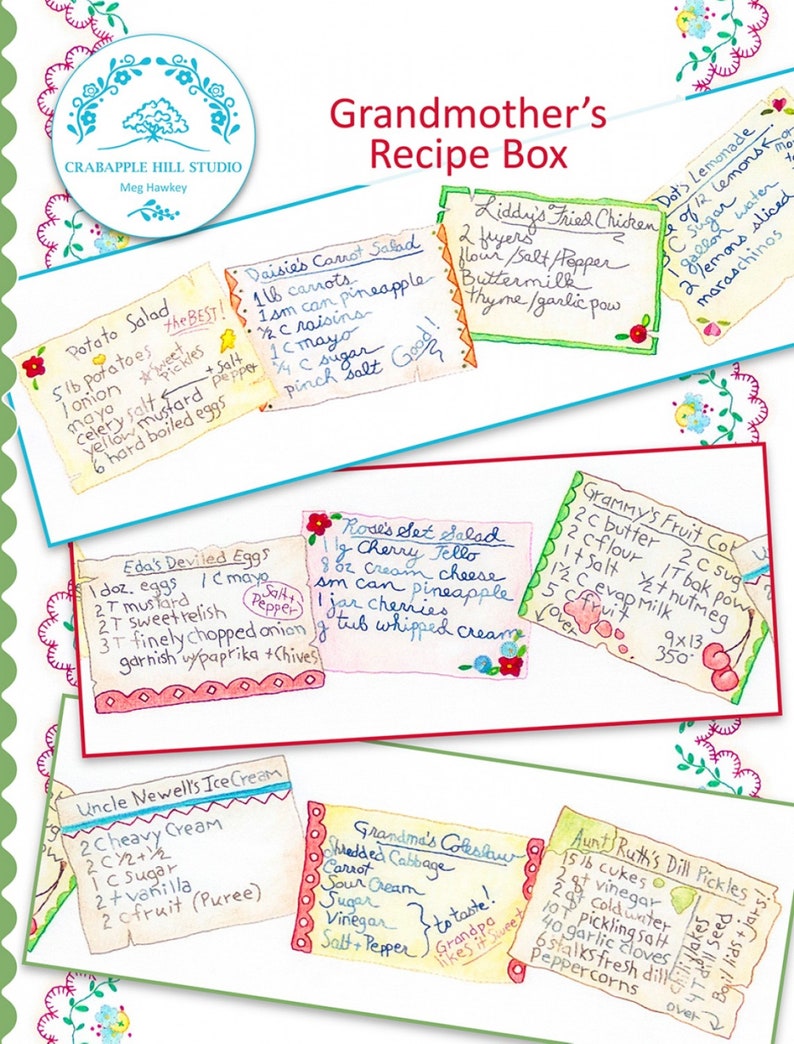 CRABAPPLE HILL STUDIO
Meg Hawkey
Grandmother's
Recipe Box
Potato Salad
the BEST!
5 lb potatoes
1 onion
sweet
pickles
mayo
celery salt
+ salt
pepper
yellow mustard
6 hard boiled eggs
Daisie's Carrot Salad
1 lb carrots
1 sm can pineapple
½ c raisins
1 c mayo
¼ c sugar
pinch salt
Good!
Liddy's Fried Chicken
2 fryers
flour/salt/Pepper
Buttermilk
thyme/garlic pow
Dot's Lemonade
of 12 lemons
or
C sugar
1 gallon water
2 lemons sliced
maraschinos
Eda's Deviled Eggs
1 doz. eggs 1 C mayo
2 T mustard
2 T sweet relish
Salt +
Pepper
3 T finely chopped onion
garnish w/paprika + Chives
Rose's Set Salad
1 lg Cherry Jello
8 oz cream cheese
sm can pineapple
1 jar cherries
g tub whipped cream
Grammy's Fruit Co
2 C butter 2 C sug
2 C flour 1 T bak pow
1 t salt ½ t nutmeg
1 ½ C evap milk
5 C fruit
over
9x13
350°
Uncle Newell's Ice Cream
2 C heavy cream
2 C ½ + ½
1 C sugar
2 t vanilla
2 C fruit (Puree)
Grandma's Coleslaw
Shredded Cabbage
Carrot
Sour Cream
Sugar
Vinegar
Salt + Pepper
to taste!
Grandpa
likes it sweet
Aunt Ruth's Dill Pickles
15 lb cukes
2 qt vinegar
2 qt cold water
10 T pickling salt
40 garlic cloves
6 stalks fresh dill
peppercorns
chili flakes
4 T dill seed
Boil lids + jars!
over